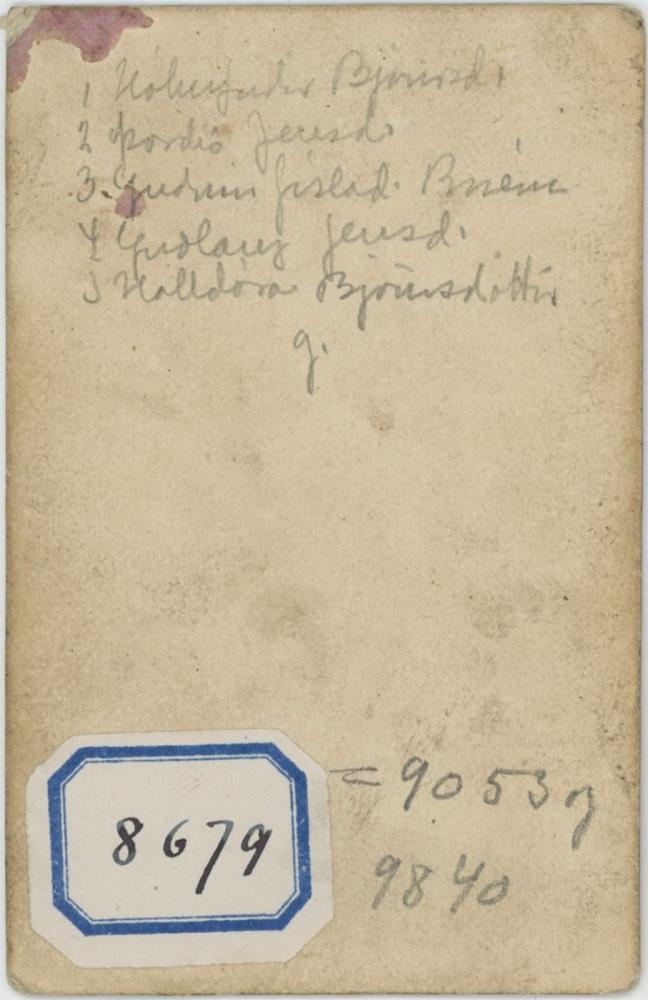 1 Hólmfríður Björnsd.
2 Þórdís Jensd.
3. Guðrún Gíslad. Briem
4 Guðlaug Jensd.
5 Halldóra Björnsdóttir
g.
= 9053 og
9840
8679